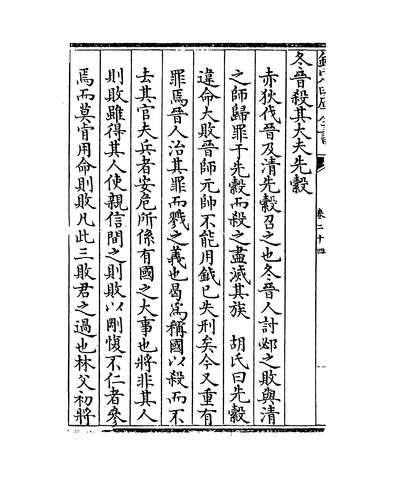 欽定四庫全書
卷二十四
冬晉殺其大夫先縠
赤狄伐晉及清先縠召之也冬晉人討邲之敗與清
之師歸罪于先縠而殺之盡滅其族　胡氏曰先縠
違命大敗晉師元帥不能用鉞已失刑矣今又重有
罪焉晉人治其罪而戮之義也曷為稱國以殺而不
去其官夫兵者安危所係有國之大事也將非其人
則敗雖得其人使親信間之則敗以剛愎不仁者參
焉而莫肯用命則敗凡此三敗君之過也林父初將